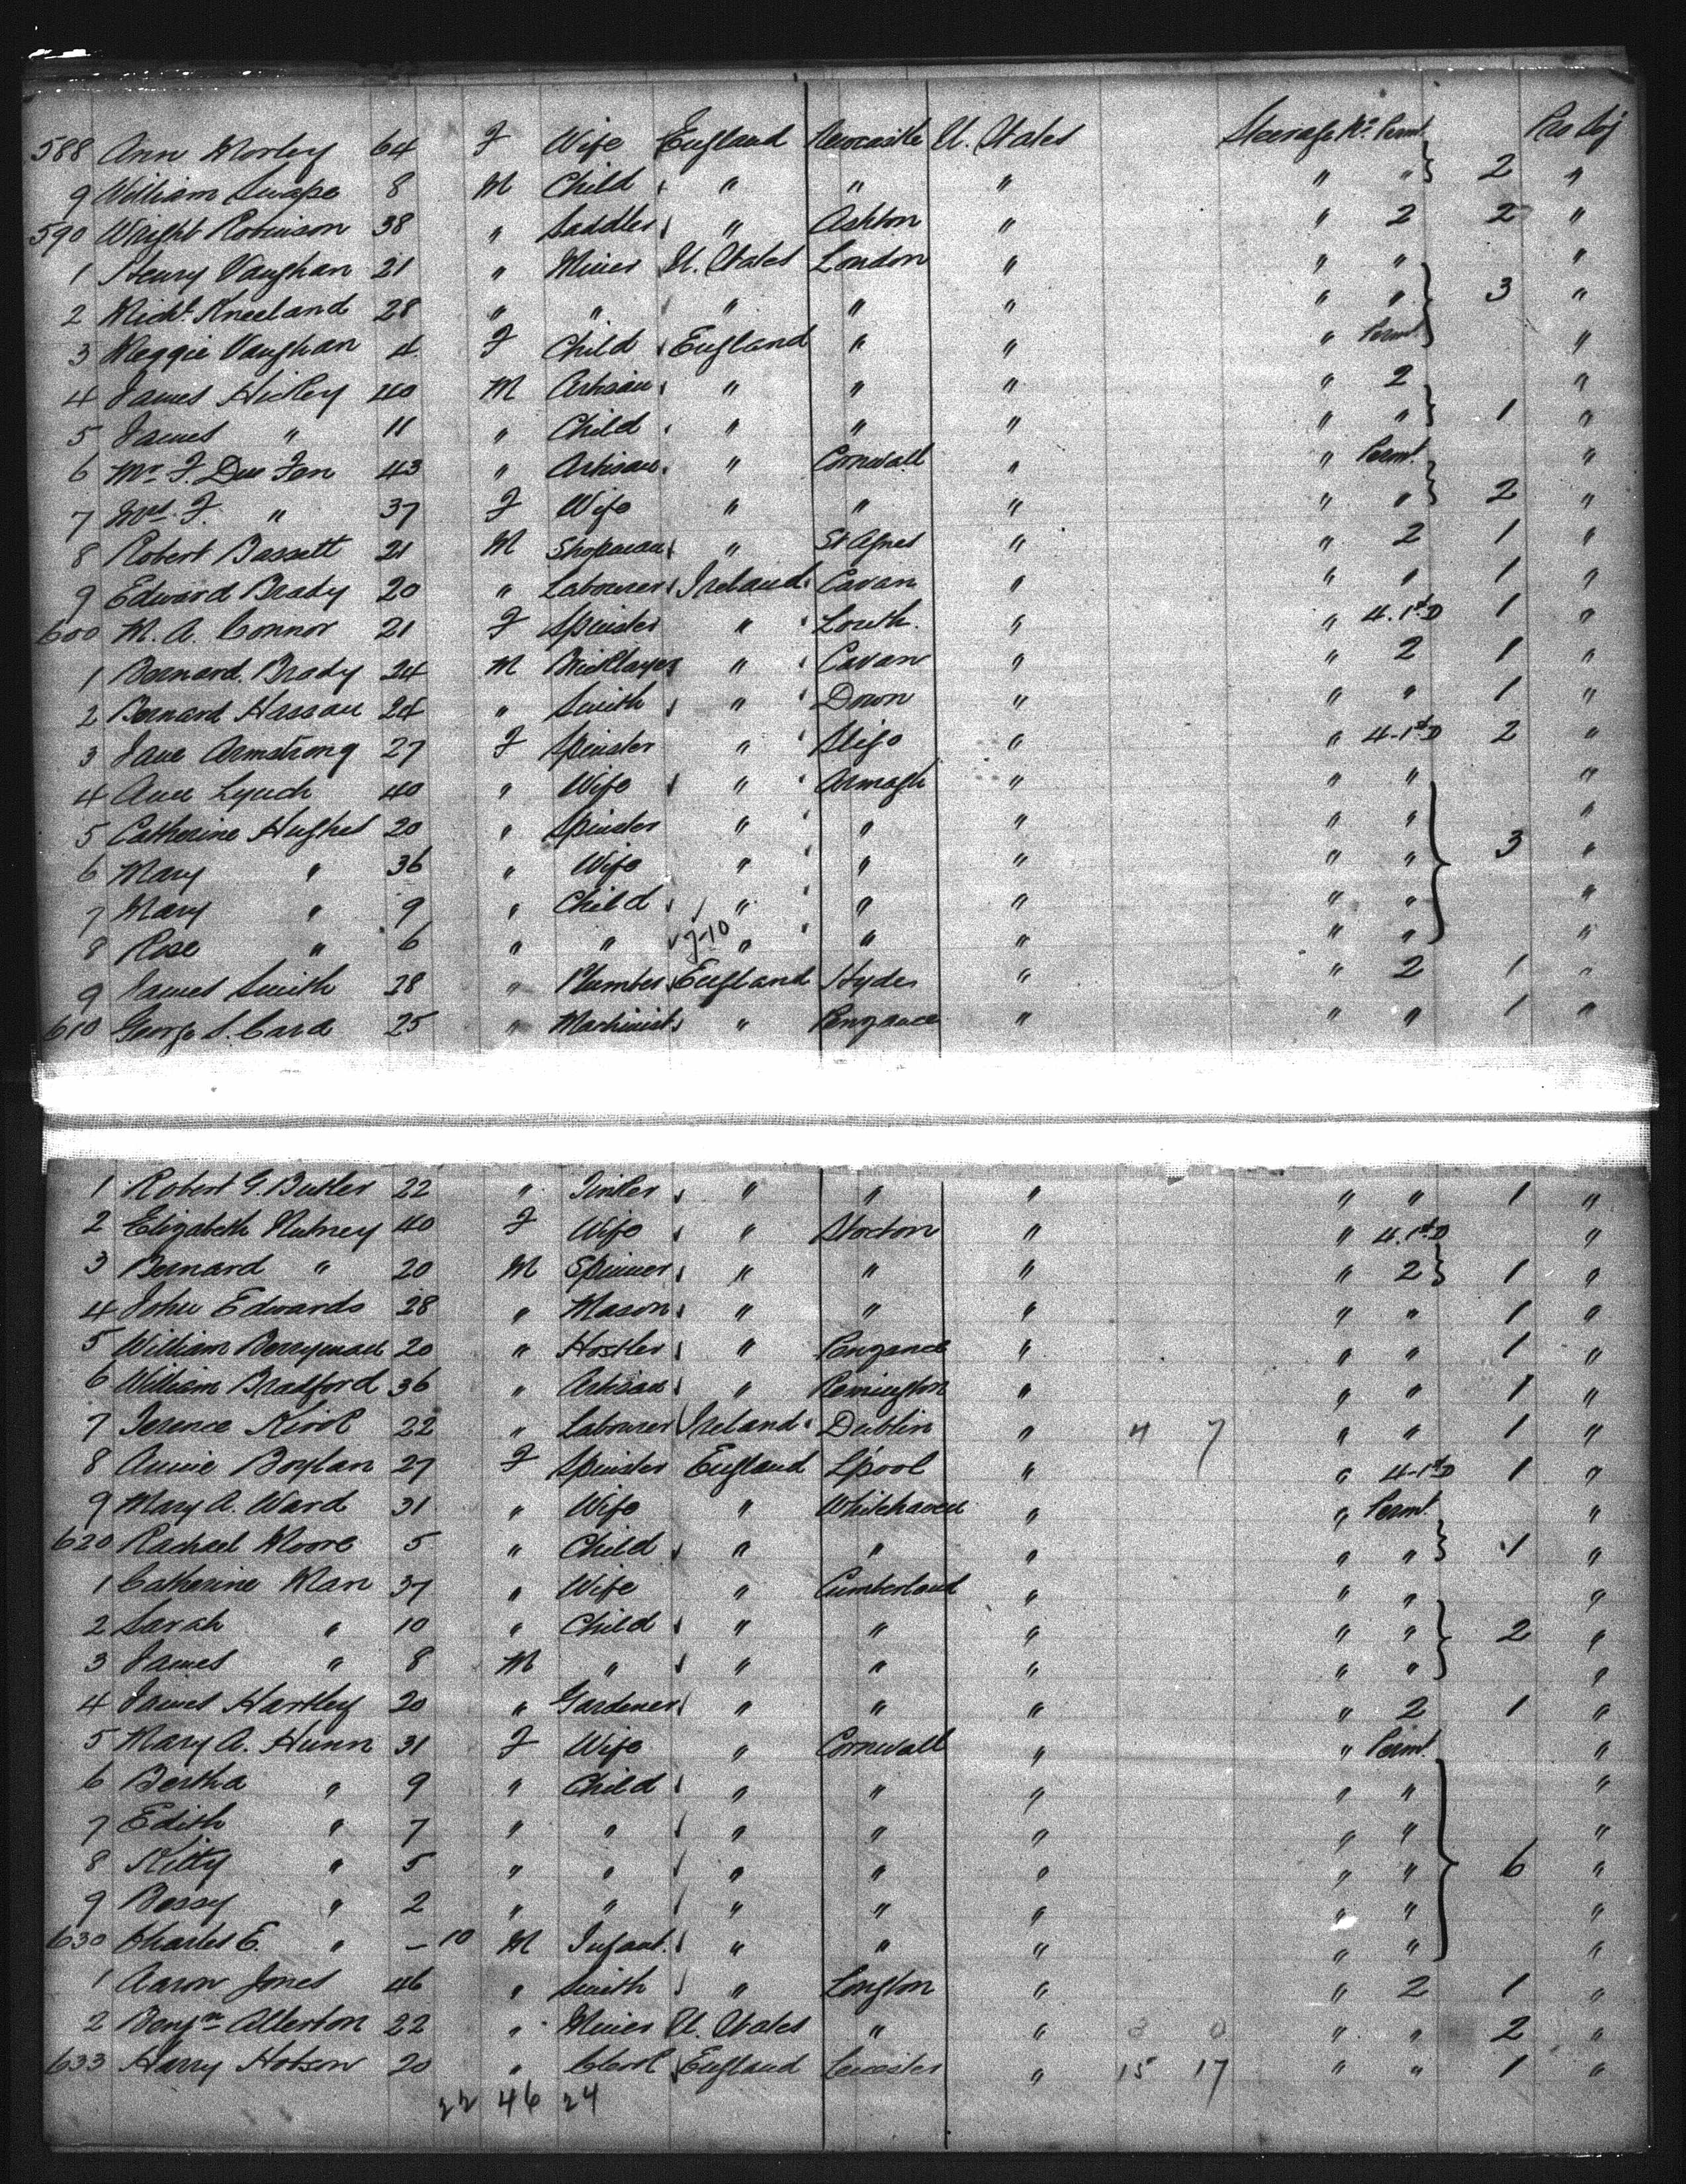 588 Ann Morley 64 F Wife England Newcastle U. States Steerage No. Permt. Pro Soj
9 William Swape 8 M Child " " " " " } 2 "
590 Wright Robinson 38 " Saddler " Ashton " " 2 2 "
1 Henry Vaughan 21 " Miner U. States London " " " "
2 Micht. Kneeland 28 " " " " " " " } 3 "
3 Meggie Vaughan 4 F Child England " " " Permt. "
4 James Hickey 40 M Artisan " " " " 2 "
5 James " 11 " Child " " " " " } 1 "
6 Mr. F. Due Fen 43 " Artisan " Cornwall " " Permt. "
7 Mrs. F. " 37 F Wife " " " " " } 2 "
8 Robert Bassett 21 M Shopman " St Agnes " " 2 1 "
9 Edward Brady 20 " Labourer Ireland Cavan " " " 1 "
600 M. A. Connor 21 F Spinster " Louth " " 4. 1st D 1 "
1 Bernard Brady 24 M Bricklayer " Cavan " " 2 1 "
2 Bernard Hassan 24 " Smith " Down " " " 1 "
3 Jane Armstrong 27 F Spinster " Sligo " " 4-1st D 2 "
4 Ann Lynch 40 " Wife " Armagh " " " "
5 Catherine Hughes 20 " Spinster " " " " " "
6 Mary " 36 " Wife " " " " " } 3 "
7 Mary " 9 " Child " " " " " "
8 Rose " 6 " " 7-10 " " " " " "
9 James Smith 28 " Plumber England Hyde " " 2 1 "
610 George S. Card 25 " Machinist " Penzance " " " 1 "
1 Robert G. Butler 22 " Tinker " " " " " 1 "
2 Elizabeth Nutney 40 F Wife " Stocton " " 4. 1st D "
3 Bernard " 20 M Spinner " " " " 2 } 1 "
4 John Edwards 28 " Mason " " " " " 1 "
5 William Berryman 20 " Hostler " Penzance " " " 1 "
6 William Bradford 36 " Artisan " Remington " " " 1 "
7 Terence Kirol 22 " Labourer Ireland Dublin " 4 7 " " 1 "
8 Annie Boylan 27 F Spinster England L'pool " " 4-1st D 1 "
9 Mary A. Ward 31 " Wife " Whitehaven " " Permt. "
620 Rachael Moore 5 " Child " " " " " } 1 "
1 Catherine Man 37 " Wife " Cumberland " " " "
2 Sarah " 10 " Child " " " " " } 2 "
3 James " 8 M " " " " " " "
4 James Hartley 20 " Gardener " " " " 2 1 "
5 Mary A. Hunn 31 F Wife " Cornwall " " Permt. "
6 Bertha " 9 " Child " " " " " "
7 Edith " 7 " " " " " " " "
8 Kitty " 5 " " " " " " " } 6 "
9 Bessy " 2 " " " " " " " "
630 Charles E. " – 10 M Infant. " " " " " "
1 Aaron Jones 46 " Smith " Longton " " 2 1 "
2 Benjn. Allerton 22 " Miner U. States " " 3 0 " " 2 "
633 Harry Hobson 20 " Clerk England Leicester " 15 17 " " 1 "
22 46 24